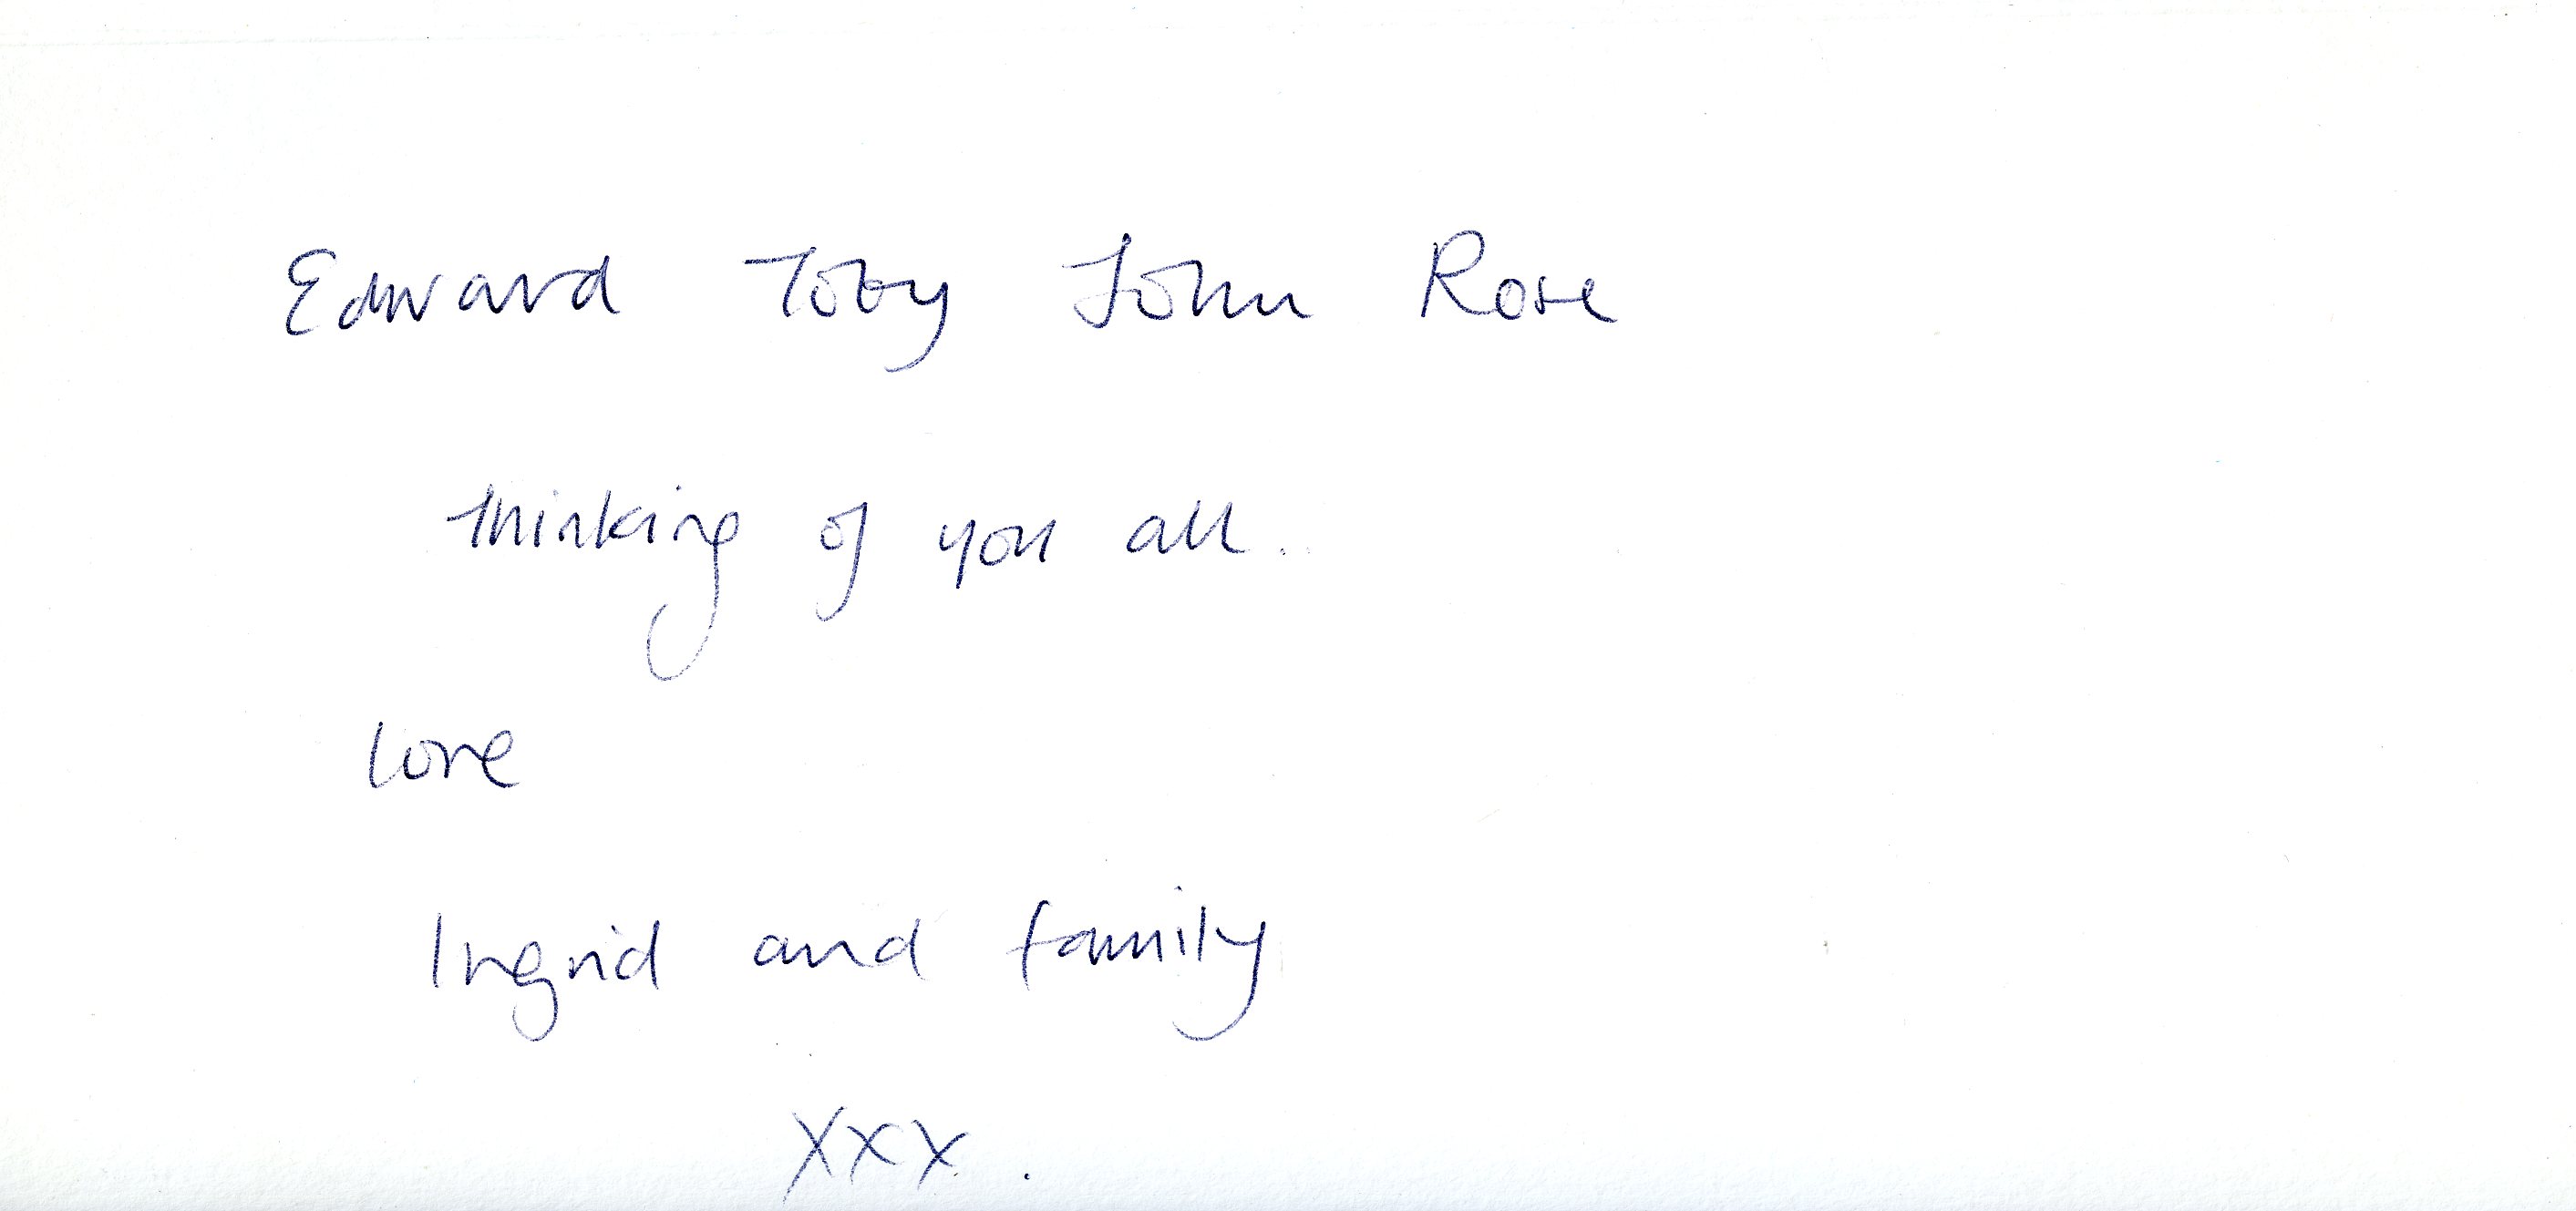 Edward Toby John Rose
thinking of you all..
love
Ingrid and family
xxx.